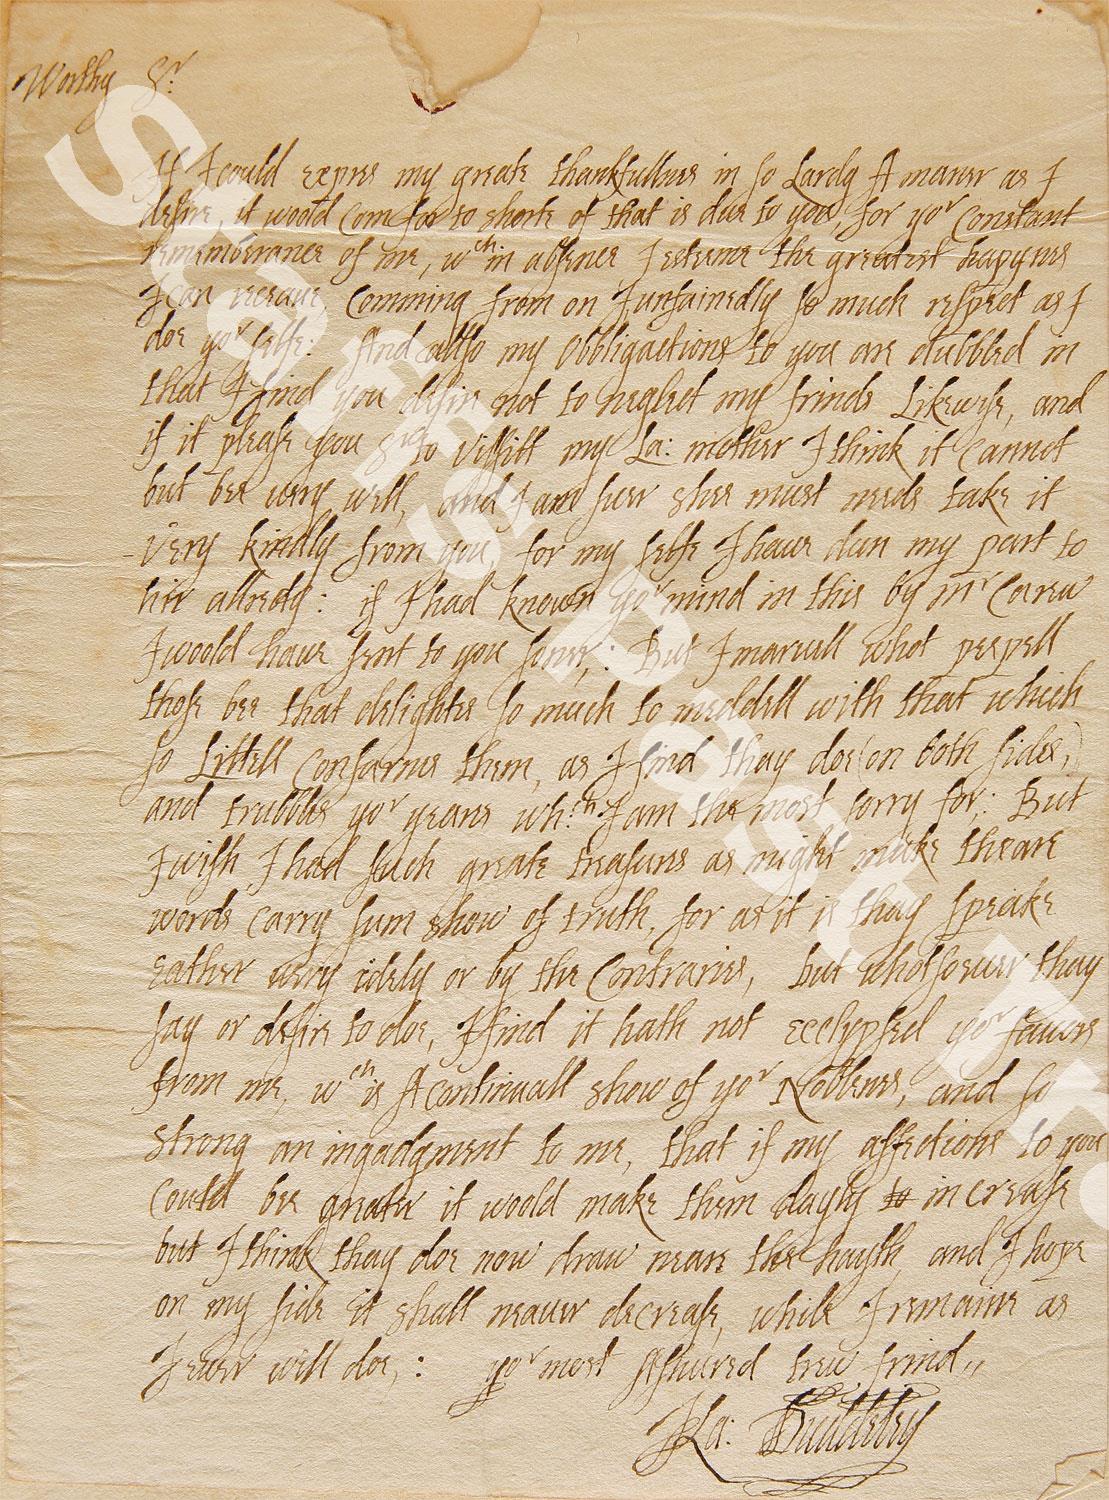 Worthy Sr:
If I could expres my greate thankfullnes in so Lardg A maner as I
desire, it woold Com far to shorte of that is due to you, for yor Constant
rememberance of me, wch in absence I esteeme the greatest hapynes
I can receaue, Comming from on I unfainedly so much respect as I
doe yor selfe: And allso my Obbligactions to you are dubbled in
that I find you desire not to neglect my frinds Likewyse, and
if it please you Sr to vissitt my La: mother I think it Cannot
but bee uery well, and I am suer shee must needs take it
very kindly from you, for my selfe I haue dun my part to
her allredy: if I had known yor mind in this by mr Carew
I woold haue sent to you soner,: But I maruell what peepell
those bee that delightes so much to meddell with that which
so Littell Consarnes them, as I find thay doe (on both sides,)
and trubbles yor yeares wh:ch I am the most sorry for,: But
I wish I had such greate treasures as might make theare
words Carry sum show of truth, for as it is thay speake
eather uery idely or by the Contraries, but whotsoeuer thay
say or desire to doe, I find it hath not ecclypsed yor fauors
from me, wch is A Continuall show of yor Noblenes, and so
strong an ingadgment to me, that if my affections to you
Could bee greater it woold make them dayly to increase
but I think thay doe now draw neare the hayth, and I hope
on my side it shall neauer decrease, while I remaine as
I euer will doe,: yor most Asshured trew frind,,
La: Dudeley
Start's Past T